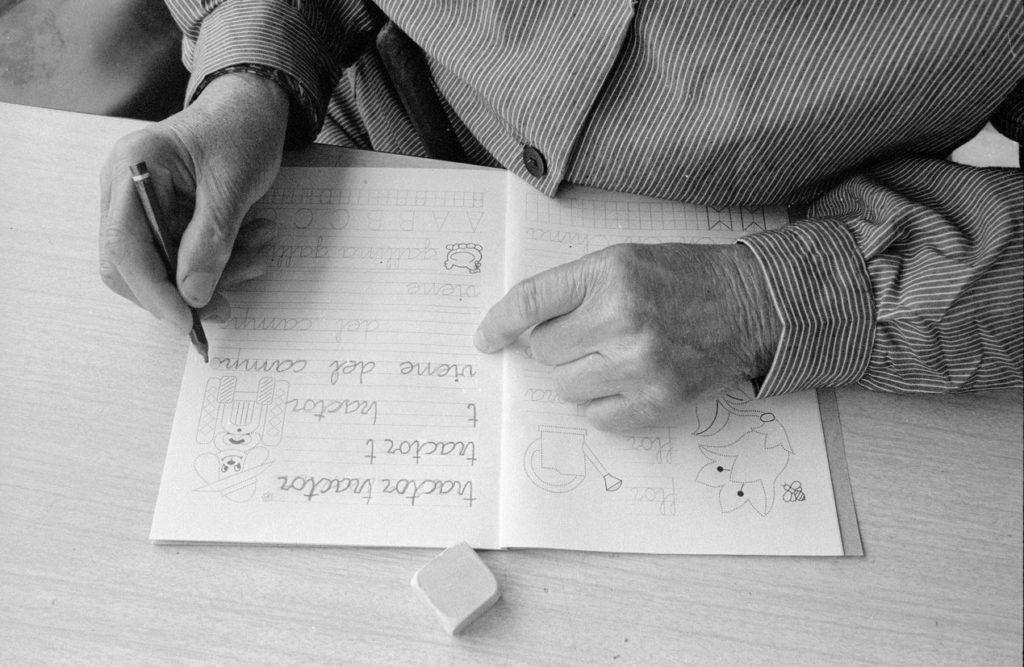 flor
flor
tractor tractor
tractor t
t tractor
viene del campo
del campo
viene
gallina
A B B C C